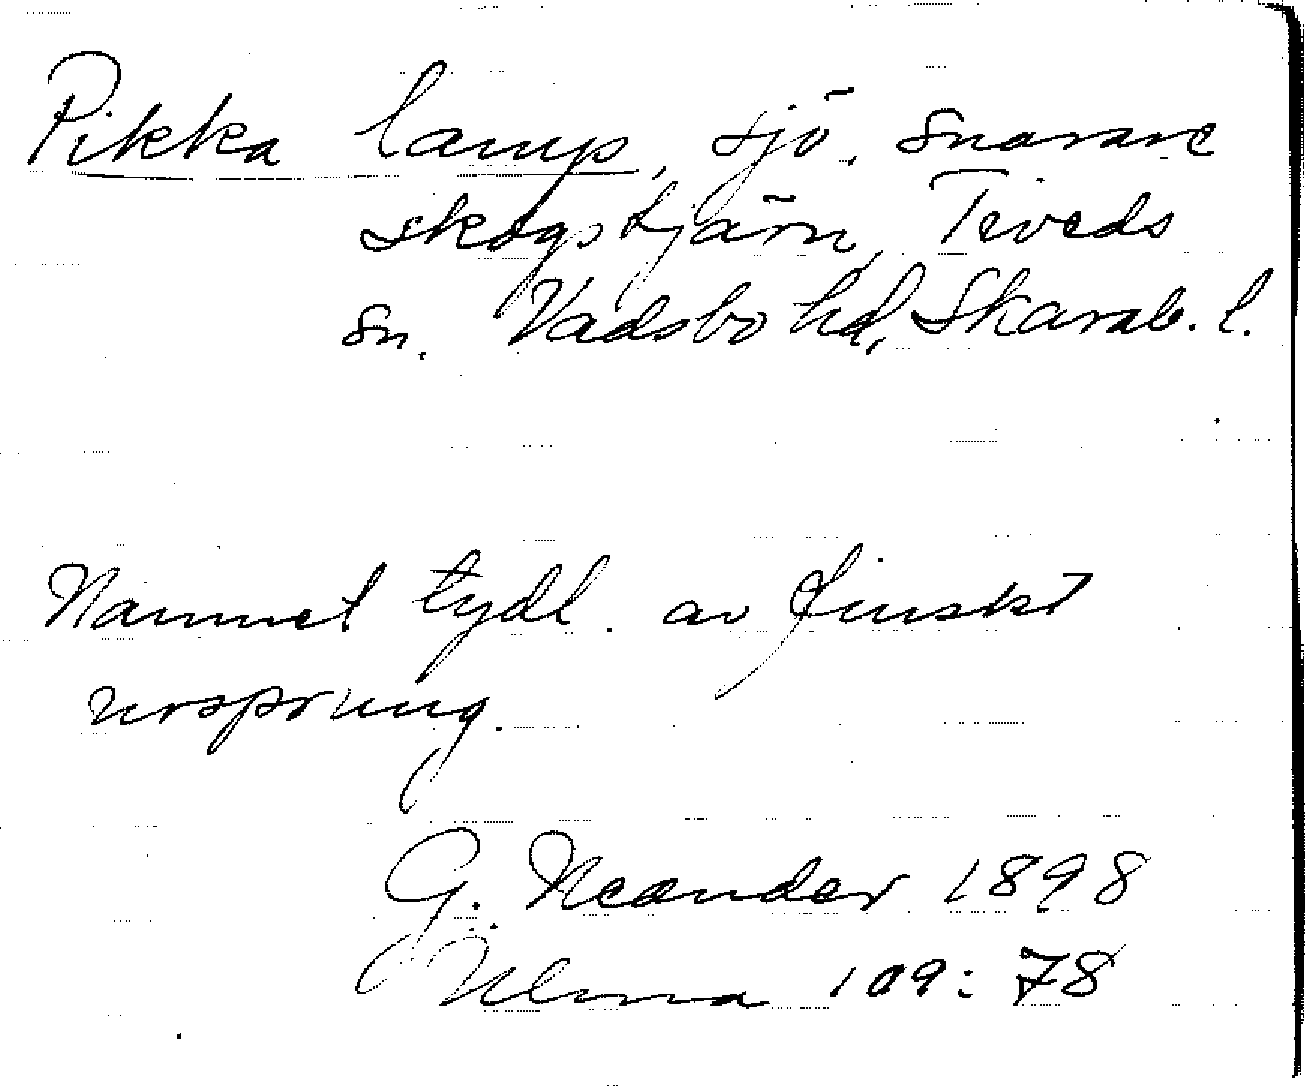 Pikka lamp, sjö. Snarare
skogstjärn, Tiveds
sn. Vadsbo hd, Skarab. l.
Namnet tydl. av finskt
ursprung.
G. Neander 1898
Ulma 109:78